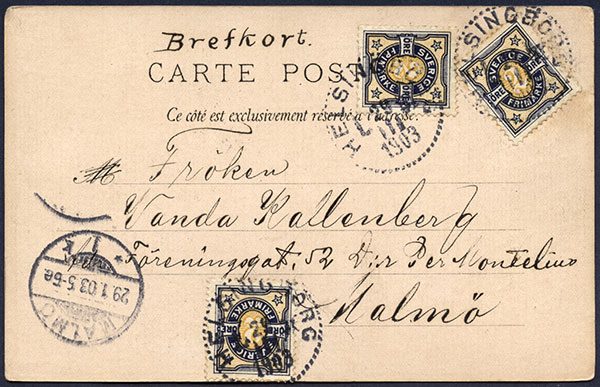 Brefkort.
CARTE POST
Ce côté est exclusivement réservé à l'adresse.
SVERIGE
FRIMÄRKE
ÖRE
HELSINGBORG
29
1903
SINGBORG
SVERIGE
FRIMÄRKE
ÖRE
M Fröken
Vanda Kallenberg
Föreningsgat. 52 Dir Per Montelius
Malmö
MALMÖ
29.1.03.5-6e
1/1 K
SVERIGE
FRIMÄRKE
ÖRE
HELSINGBORG
29
1903